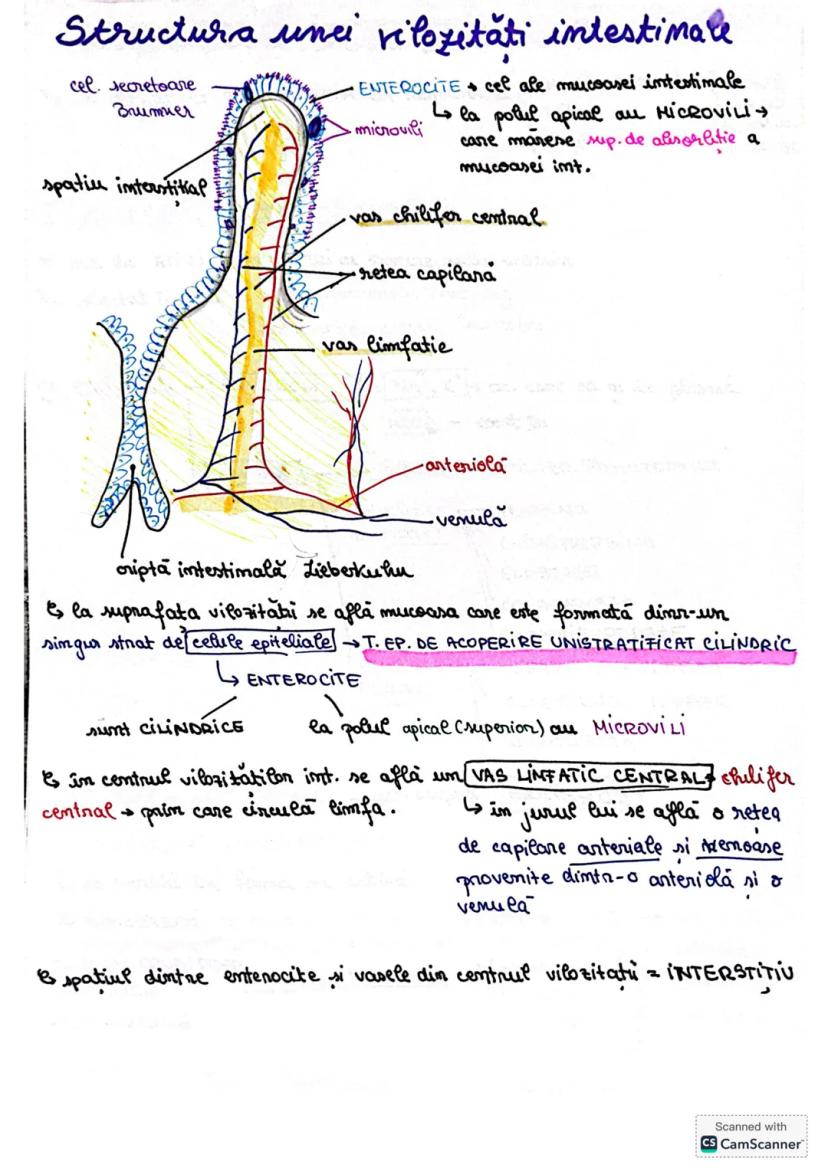 Structura unei vilozități intestinale
cel. secretoare
Brunner
ENTEROCITE → cel ale mucoasei intestinale
↳ la polul apical au MICROVILI →
care măresc sup. de absorbție a
mucoasei int.
microvili
spațiu interstițial
vas chilifer central
retea capilară
vas limfatic
arteriolă
venulă
criptă intestinală Lieberkuhn
↳ la suprafata vilozitătii se află mucoasa care este formată dintr-un
singur strat de celule epiteliale → T. EP. DE ACOPERIRE UNISTRATIFICAT CILINDRIC
↳ ENTEROCITE
sunt CILINDRICE
la polul apical (superior) au MICROVILI
↳ în centrul vilozităților int. se află un VAS LIMFATIC CENTRAL → chilifer
central → prin care circulă limfa.
↳ în jurul lui se află o rețea
de capilare arteriale și venoase
provenite dintr-o arteriolă și o
venulă
↳ spațiul dintre enterocite și vasele din centrul vilozității = INTERSTIȚIU
Scanned with
CS CamScanner